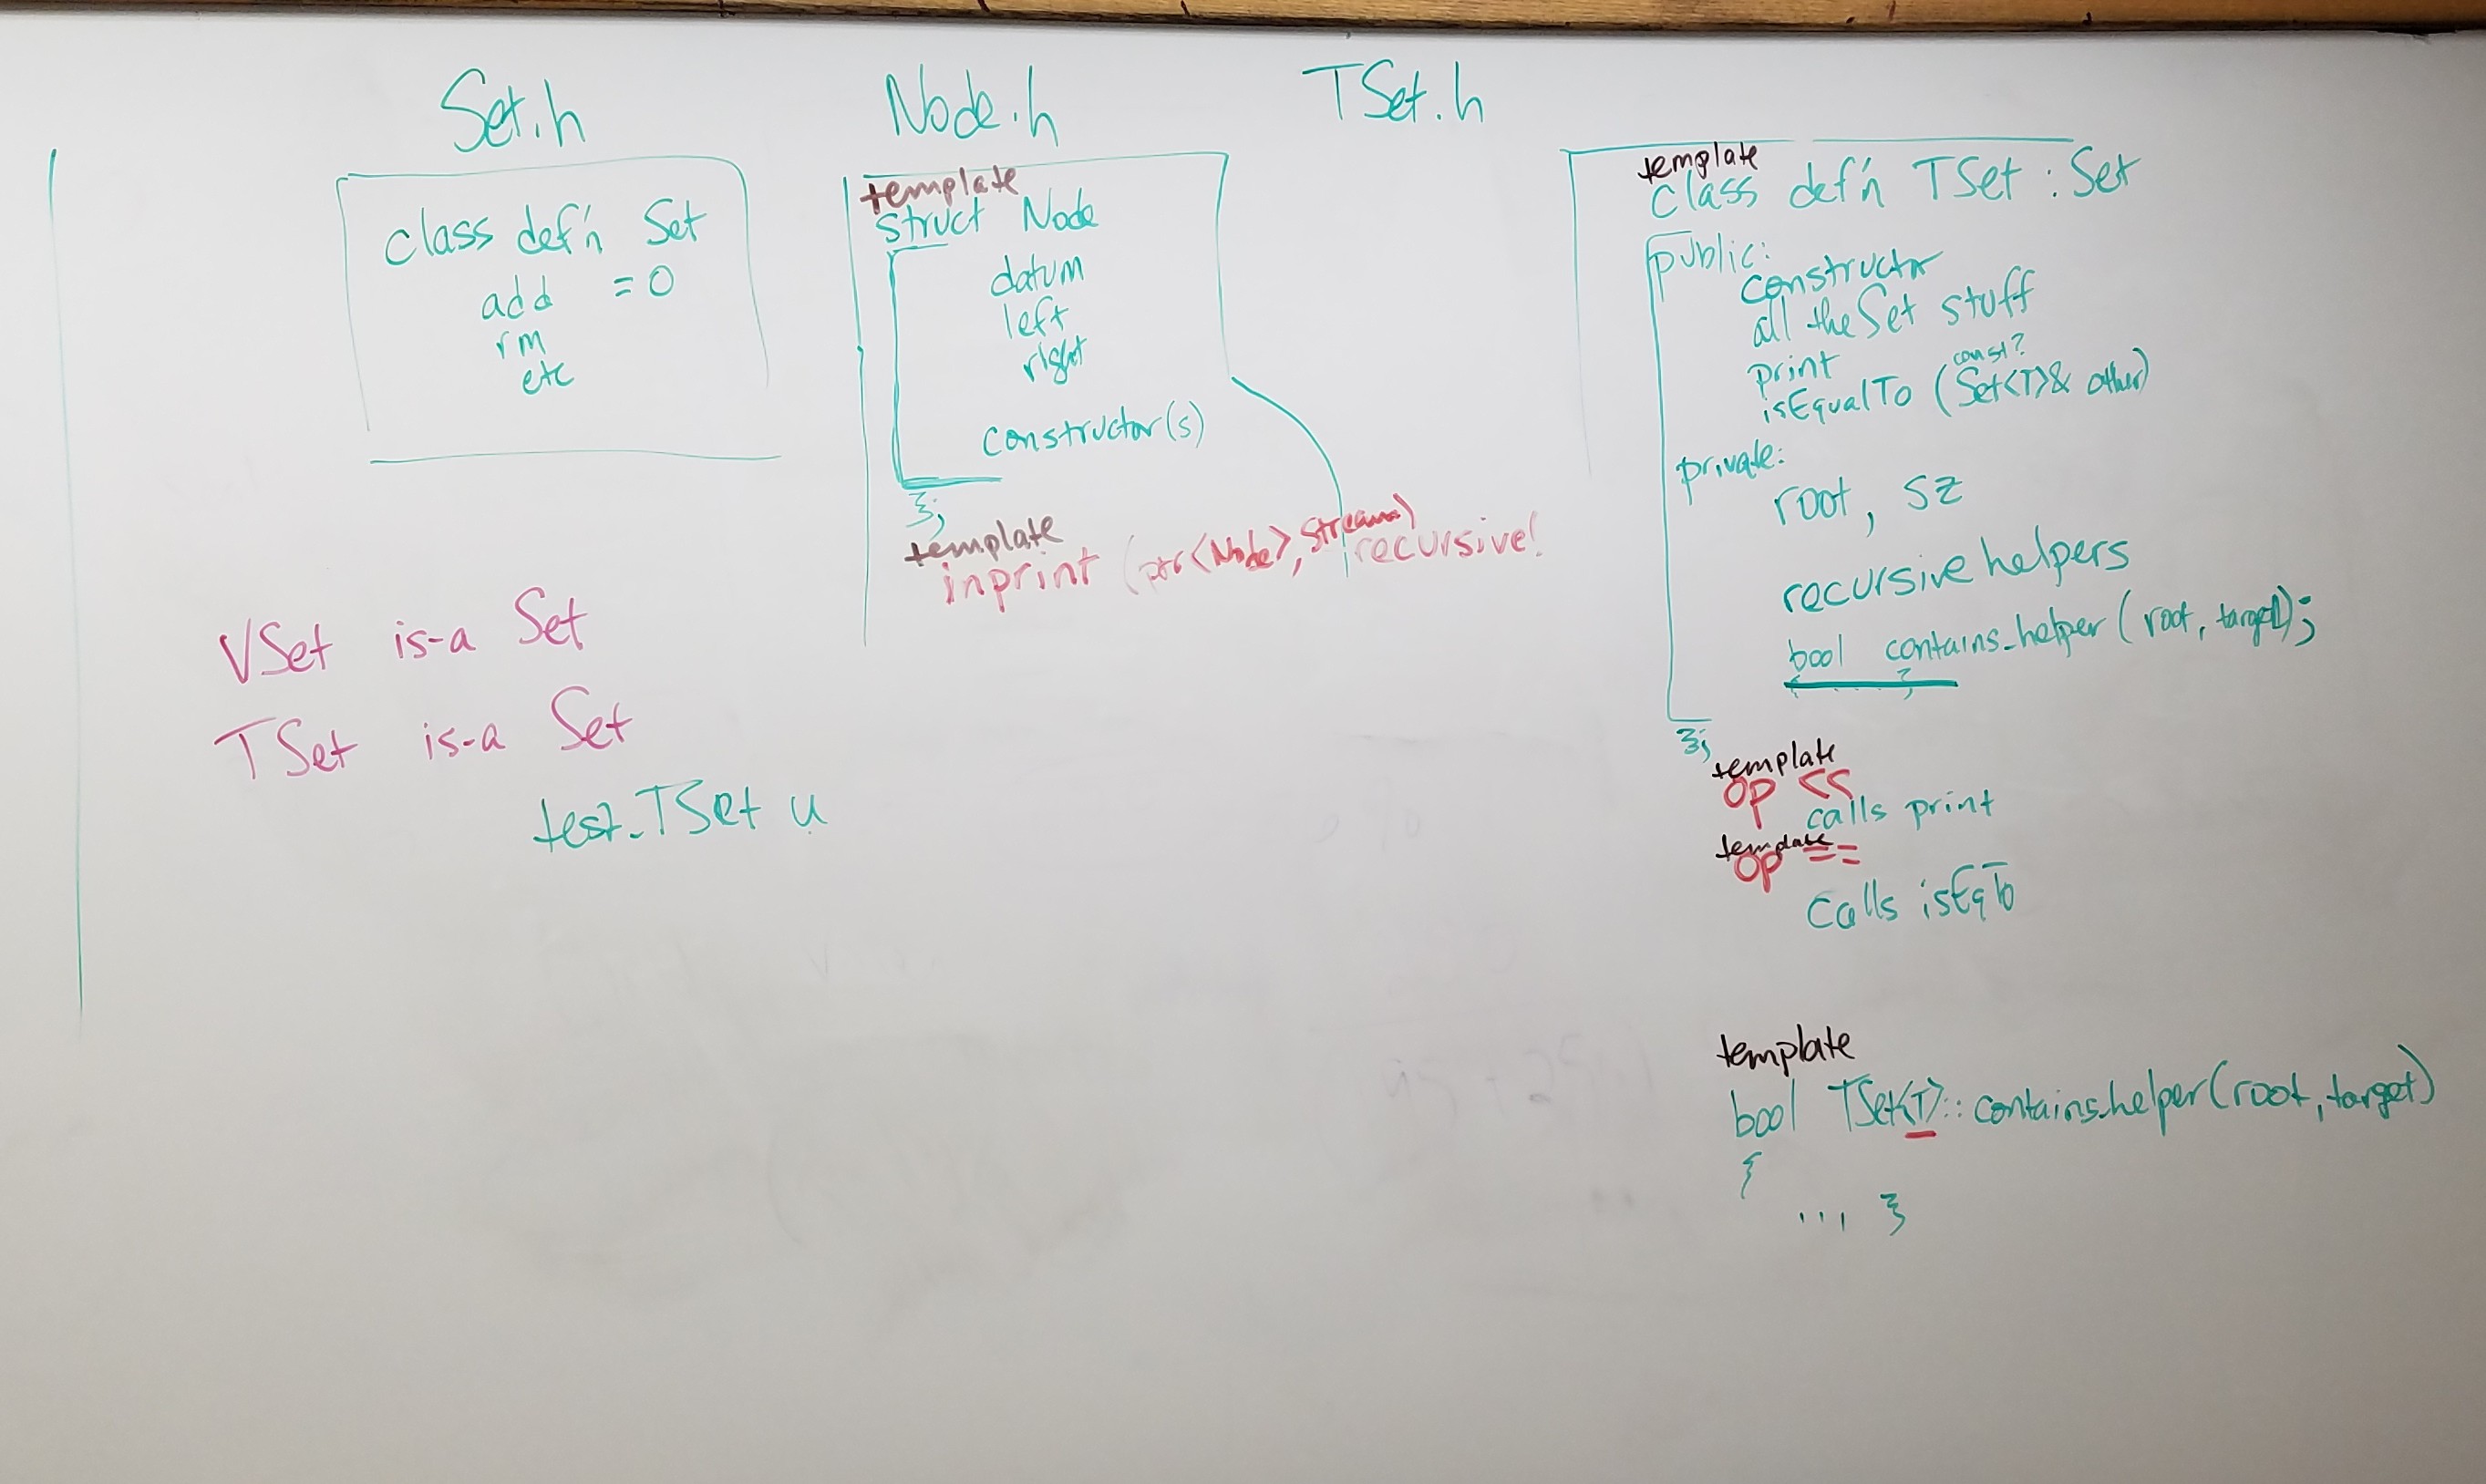 Set.h
class def'n Set
add = 0
rm
etc
VSet is-a Set
TSet is-a Set
test_TSet u
Node.h
template
struct Node
datum
left
right
constructor(s)
};
template
inprint (ptr<Node>, stream) recursive!
TSet.h
template
class def'n TSet : Set
public:
constructor
all the Set stuff
print
const?
isEqualTo (Set<T>& other)
private:
root, sz
recursive helpers
bool contains_helper (root, target);
};
template
op <<
calls print
template
op ==
calls isEqTo
template
bool TSet<T>::contains_helper(root, target)
{
... }